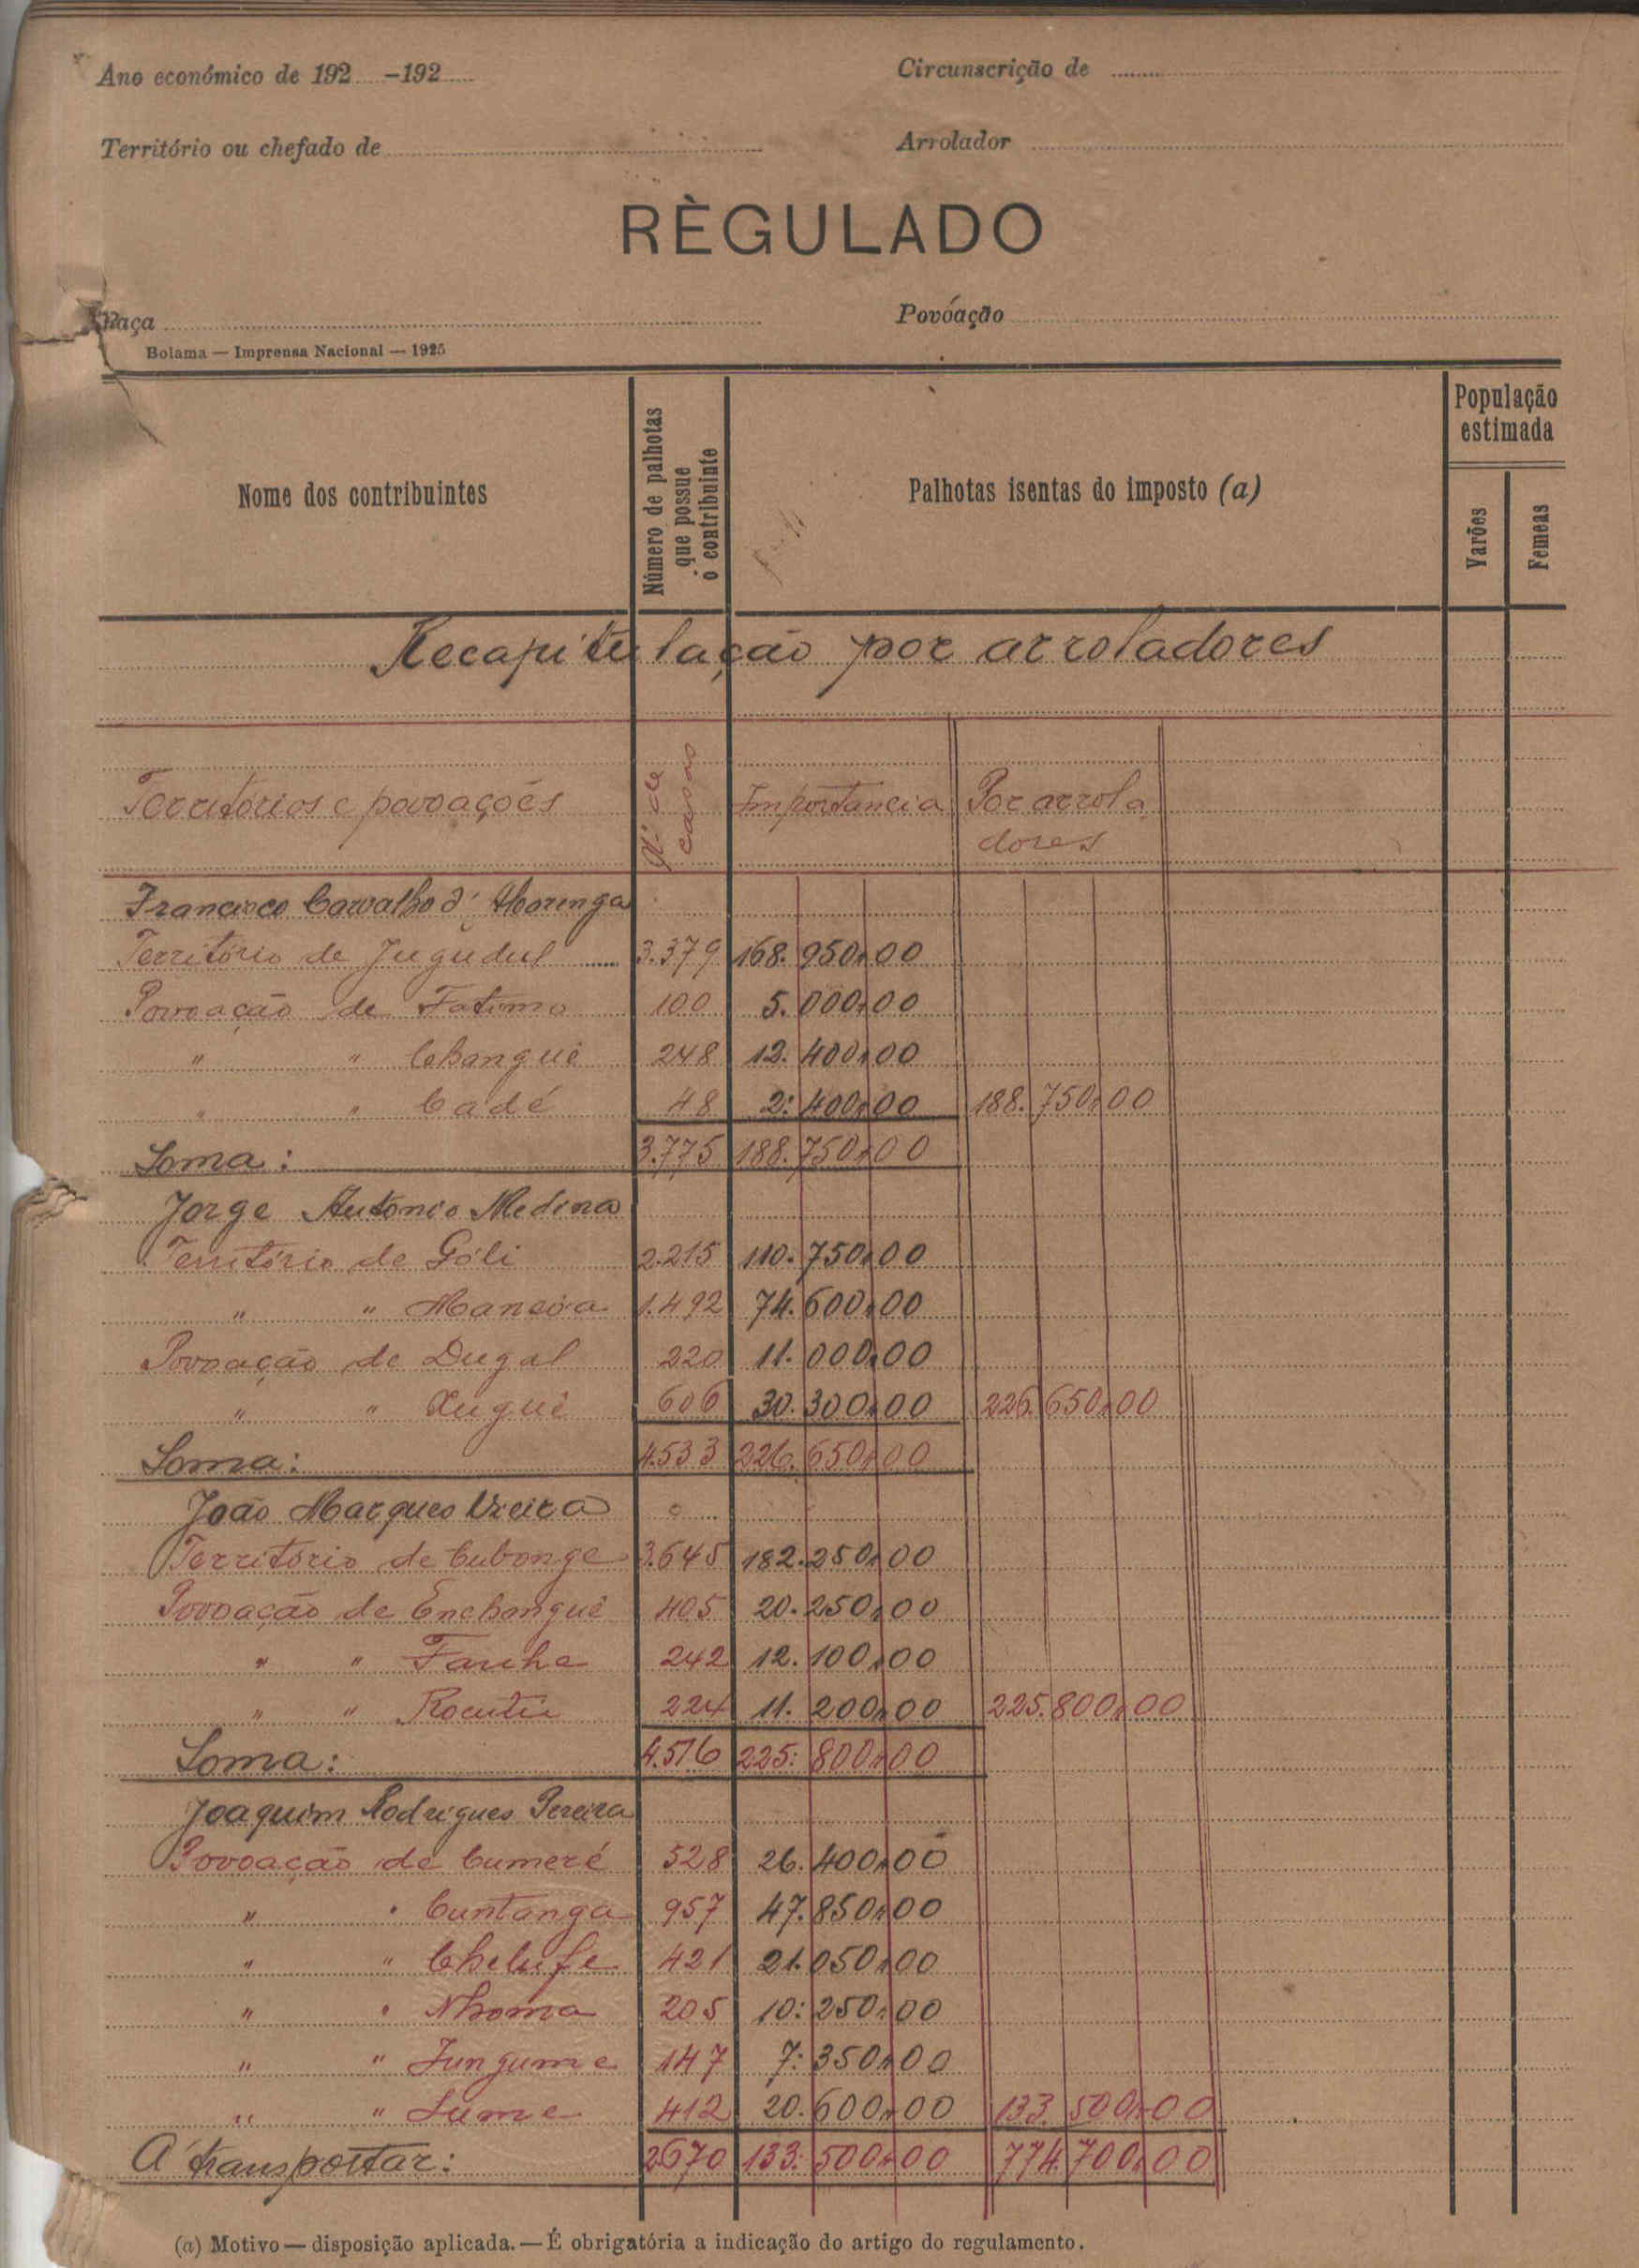 Ano económico de 192 -192
Circunscrição de
Território ou chefado de
Arrolador
RÈGULADO
Raça
Povóação
Bolama — Imprensa Nacional — 1925
Nome dos contribuintes
Número de palhotas que possue o contribuinte
Palhotas isentas do imposto (a)
População estimada
Varões
Femeas
Recapitulação por arroladores
Territórios e povoações
Nº de casas
Importancia
Por arrola
dores
Francisco Carvalho d'
Território de Jugudul 3.379 168.950,00
Povoação de Fatimo 100 5.000,00
" " Changue 248 12.400,00
" " Cadé 48 2:400,00 188.750,00
Soma: 3.775 188.750,00
Jorge Antonio Medina
Território de Góli 2.215 110.750,00
" " Mansôa 1.492 74.600,00
Povoação de Dugal 220 11.000,00
" " 606 30.300,00 226.650,00
Soma: 4.533 226.650,00
João Marques Vieira
Território de Cubonge 3.645 182.250,00
Povoação de Enchangue 405 20.250,00
" " Fanhe 242 12.100,00
" " Rocutu 224 11.200,00 225.800,00
Soma: 4.516 225:800,00
Joaquim Rodrigues Pereira
Povoação de Cumeré 528 26.400,00
" " Cuntanga 957 47.850,00
" " Chelufe 421 21.050,00
" " Nhoma 205 10:250,00
" " Fungume 147 7:350,00
" " Sume 412 20.600,00 133.500,00
A transportar: 2670 133:500,00 774.700,00
(a) Motivo — disposição aplicada. — É obrigatória a indicação do artigo do regulamento.